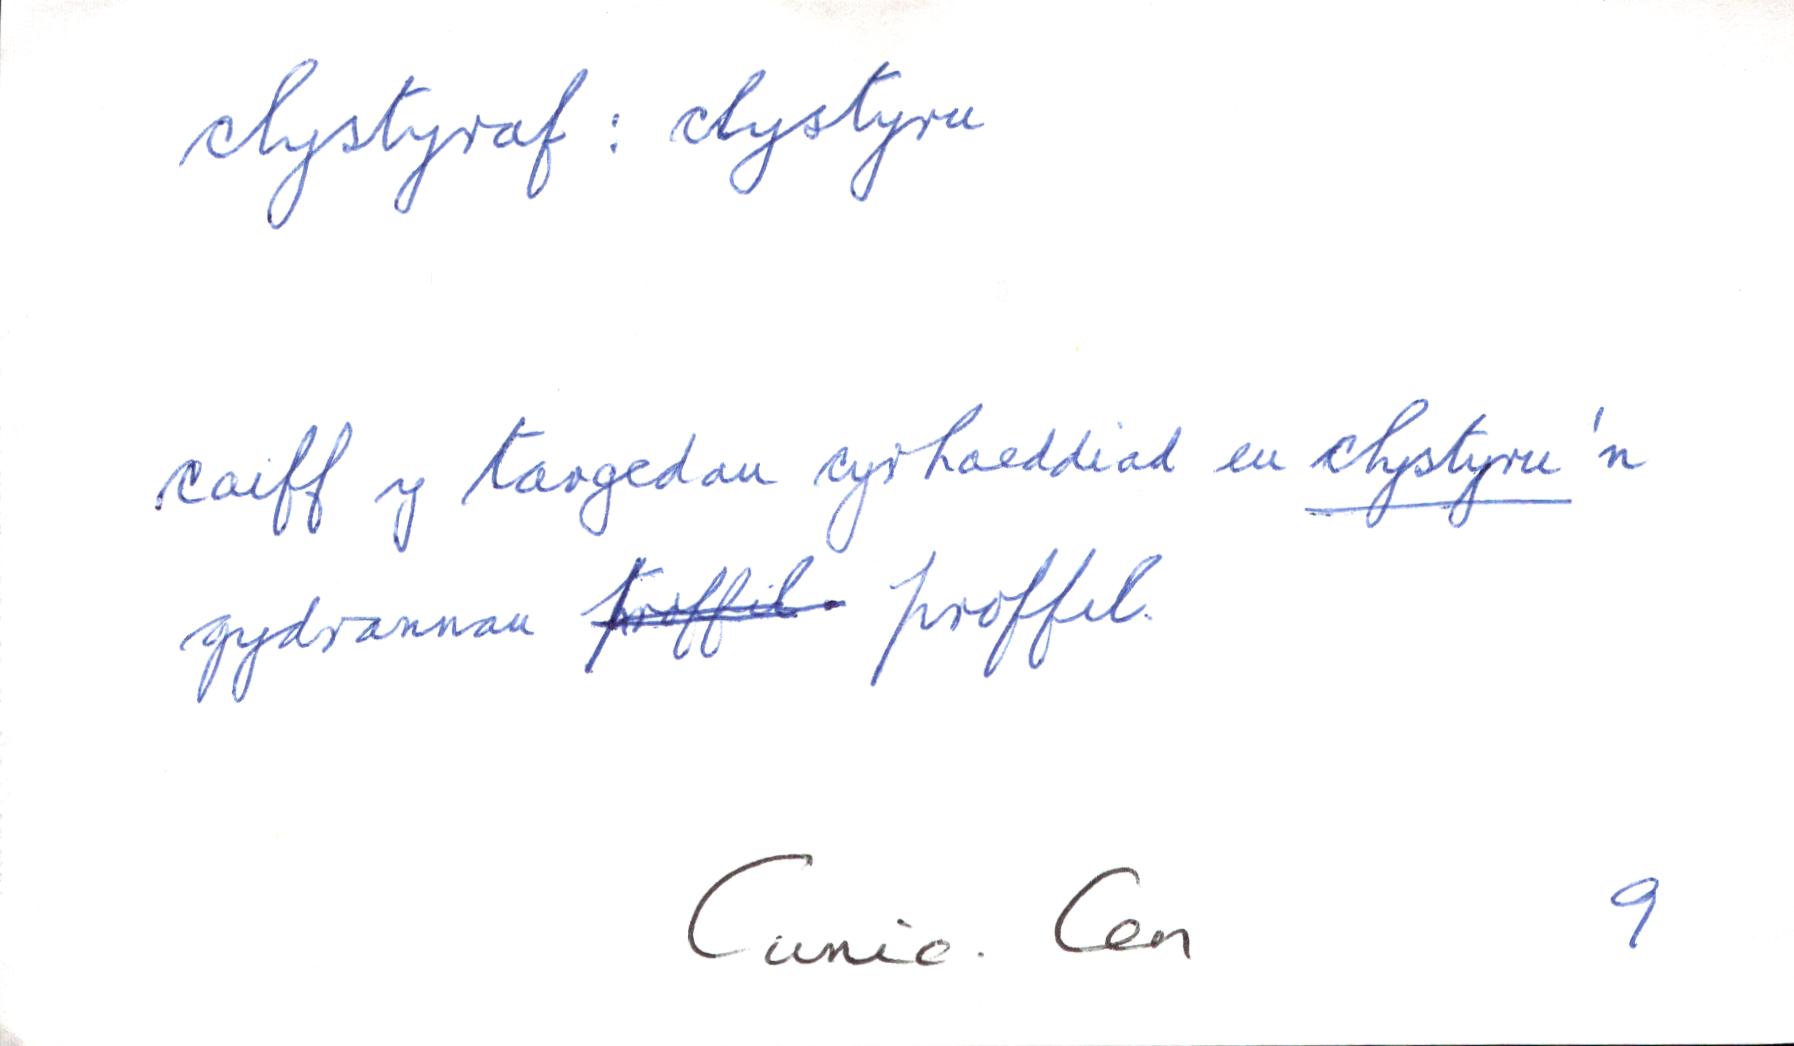 clystyraf : clystyru
caiff y targedau cyrhaeddiad eu clystyru'n
gydrannau proffil proffil.
Cwric. Cen 9